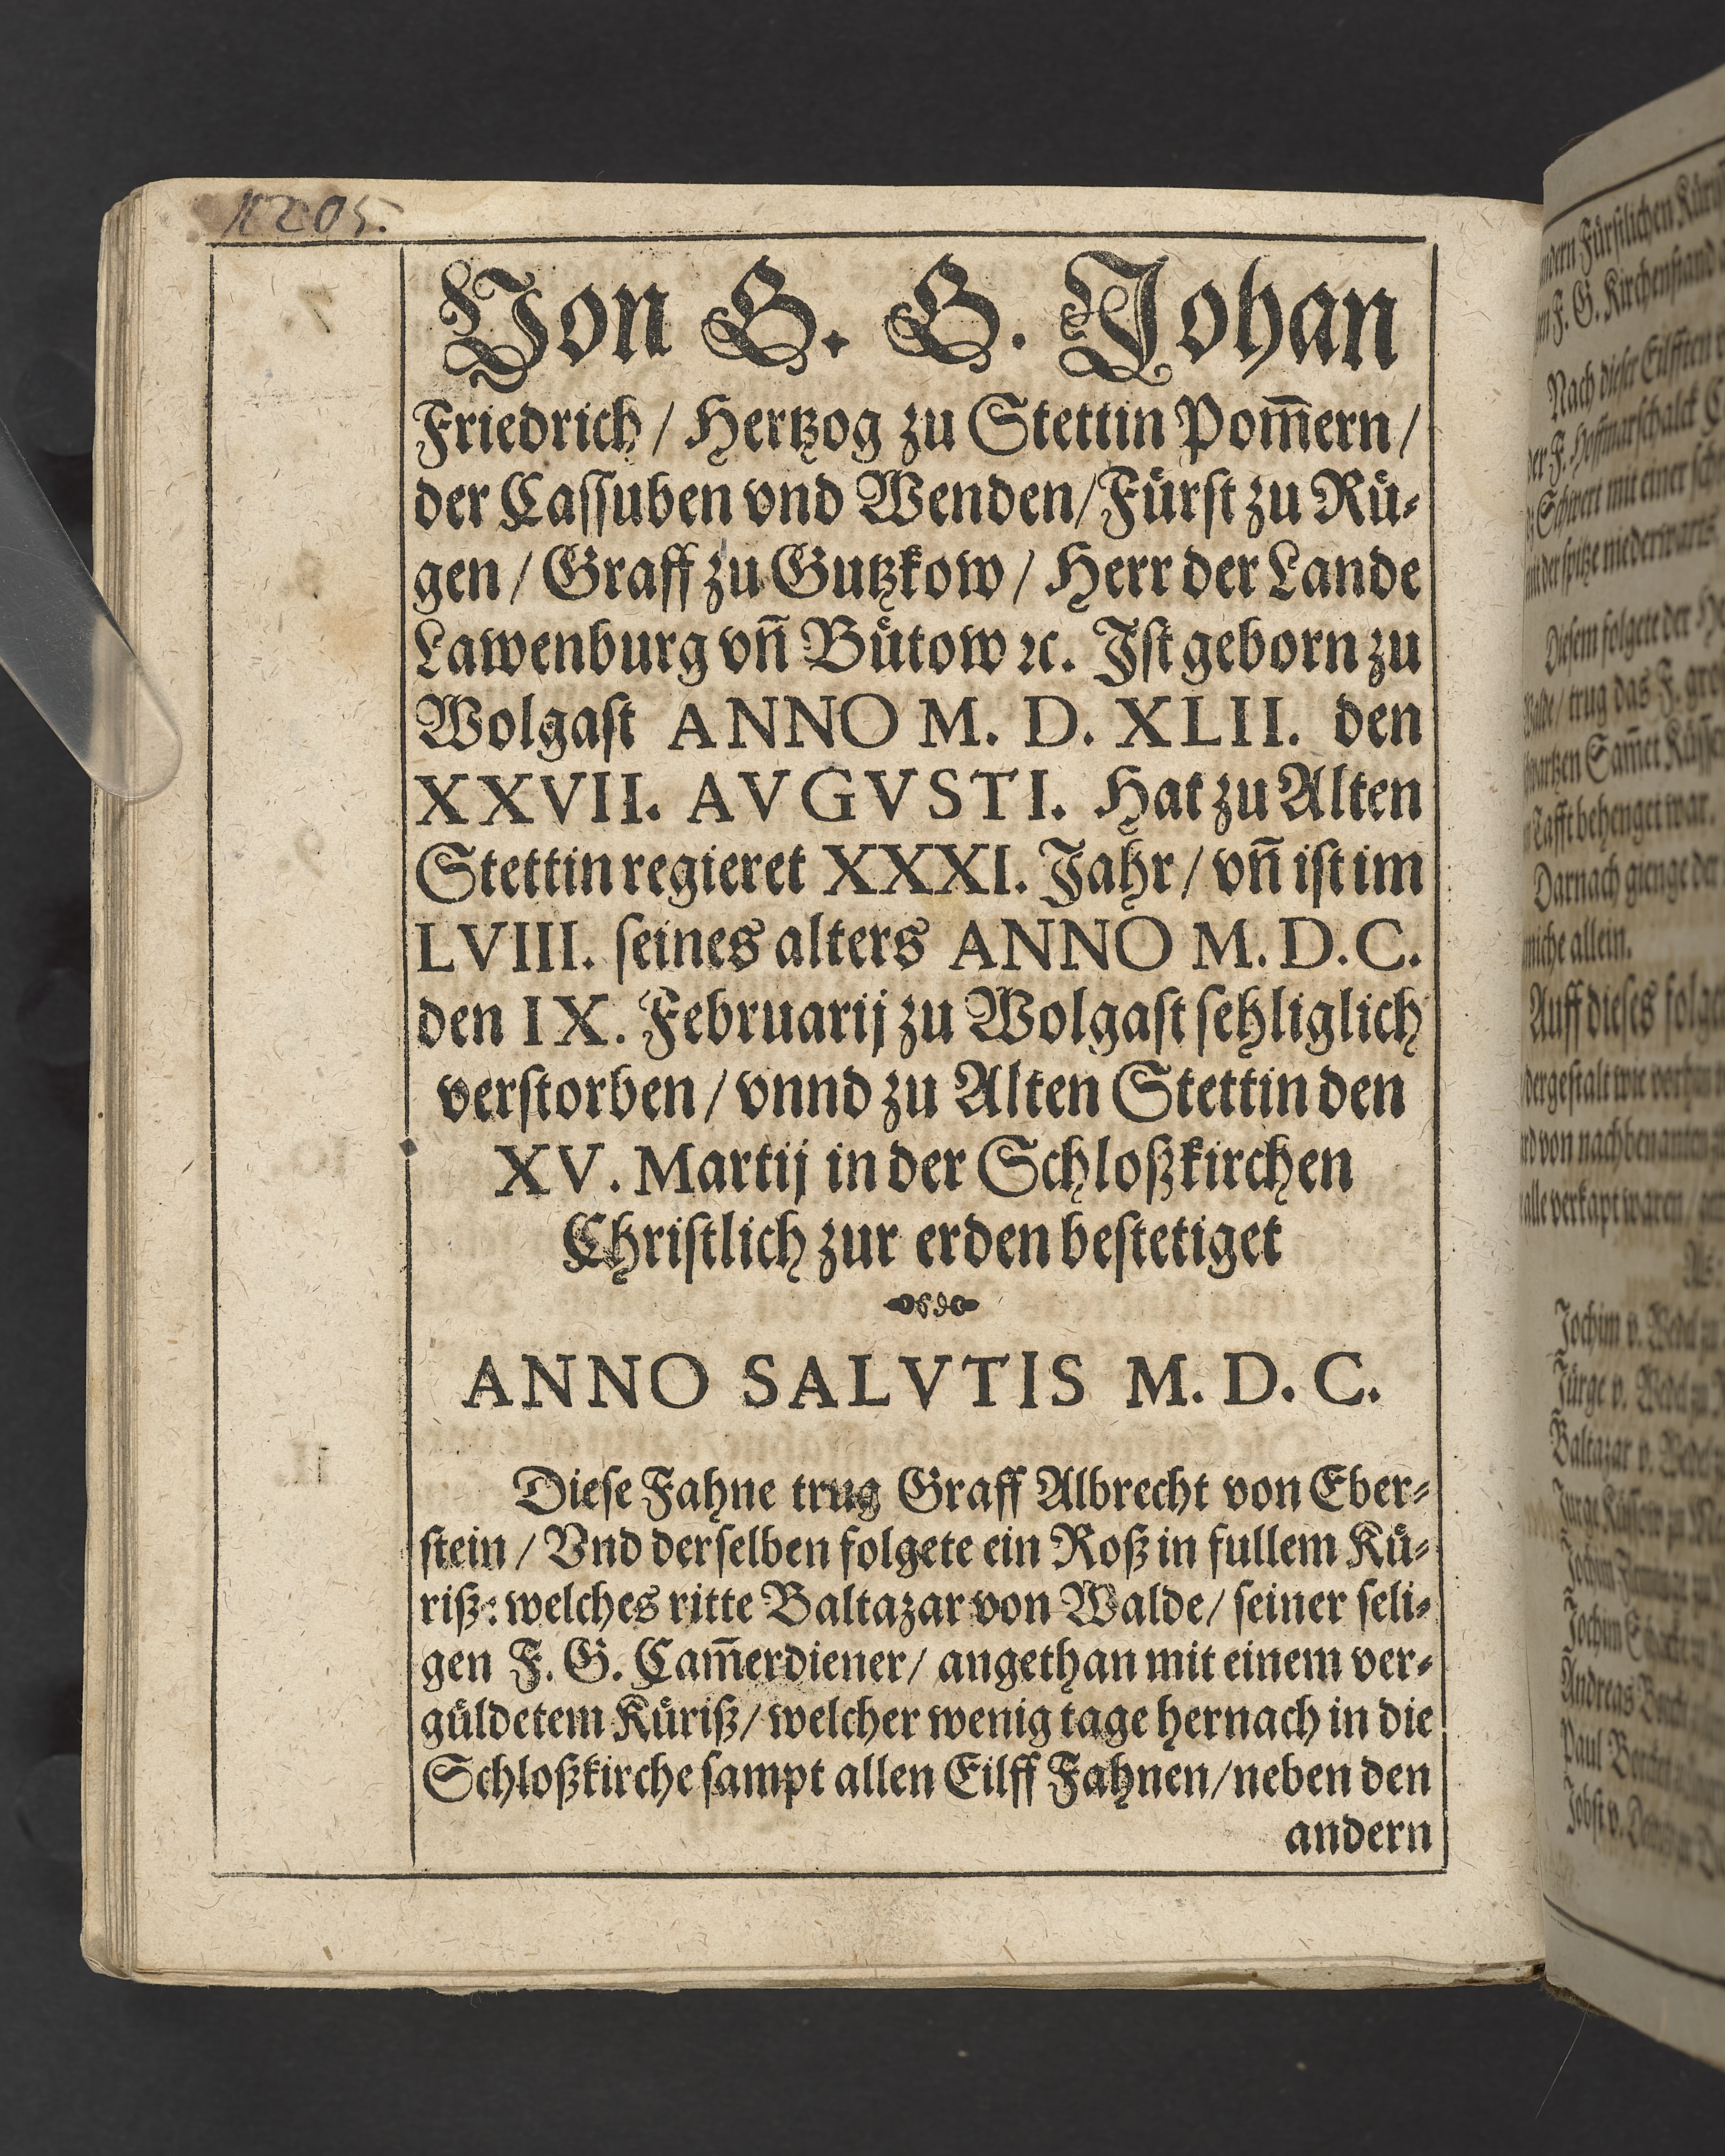 11205.
Von G. G. Johan
Friedrich / Hertzog zu Stettin Pom̄ern /
der Cassuben vnd Wenden / Fürst zu Rü⸗
gen / Graff zu Gutzkow / Herr der Lande
Lawenburg vn̄ Bütow ꝛc. Ist geborn zu
Wolgast ANNO M. D. XLII. den
XXVII. AVGVSTI. Hat zu Alten
Stettin regieret XXXI. Jahr / vn̄ ist im
LVIII. seines alters ANNO M. D. C.
den IX. Februarij zu Wolgast sehliglich
verstorben / vnnd zu Alten Stettin den
XV. Martij in der Schloßkirchen
Christlich zur erden bestetiget
ANNO SALVTIS M. D. C.
Diese Fahne trug Graff Albrecht von Eber⸗
stein / Vnd derselben folgete ein Roß in fullem Kü⸗
riß: welches ritte Baltazar von Walde / seiner seli⸗
gen F. G. Cam̄erdiener / angethan mit einem ver⸗
güldetem Küriß / welcher wenig tage hernach in die
Schloßkirche sampt allen Eilff Fahnen / neben den
andern
andern Fürstlichen
F. G. Kirchenstand
Nach dieser Eilfften
der F. Hoffmarschalck
Schwert mit einer
mit der spitze niederwarts.
Diesem folgete der
Walde / trug das F.
Sam̄et Küssen
Tafft behenget war.
Darnach gienge der
allein.
Auff dieses
dergestalt wie vorhin
von nachbenanten
alle verkapt waren /
Jochim v. Wedel zu
Jürge v. Wedel zu
Baltazar v. Wedel
Jochim
Jochim
Andreas
Paul
Jobst v.